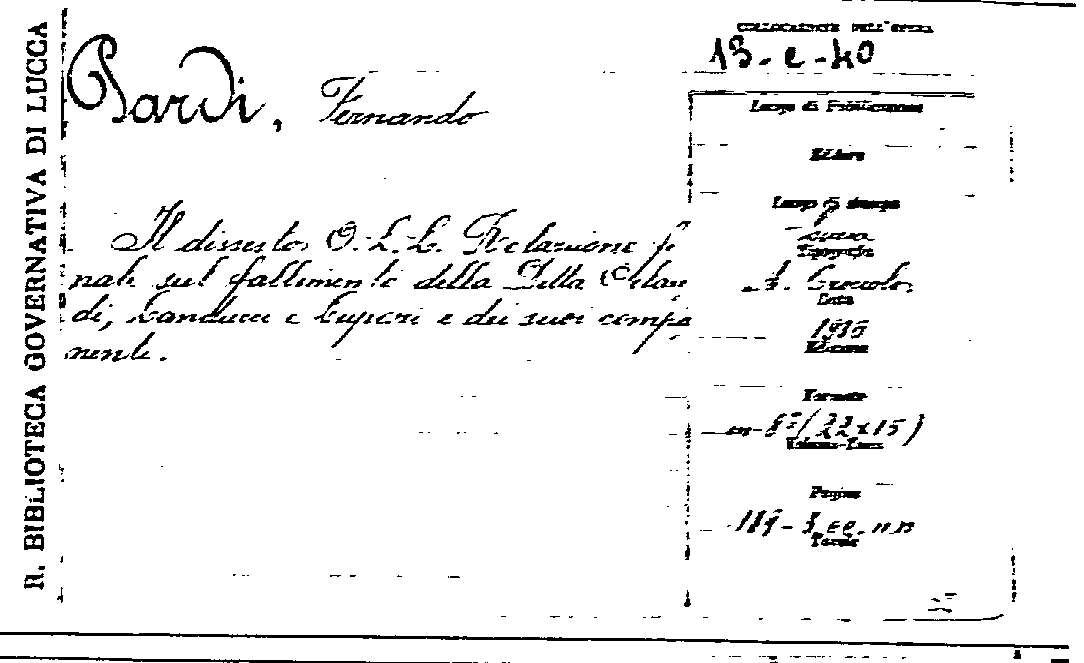 R. BIBLIOTECA GOVERNATIVA DI LUCCA
Pardi, Fernando
Il dissesto O. L. L. Relazione fi
nale sul fallimento della Ditta
di, Landucci e Lupori e dei suoi compo
nenti.
COLLOCAZIONE DELL'OPERA
13-e-40
Luogo di Pubblicazione
Editore
Luogo di stampa
Lucca
Tipografia
A.
Data
Edizione
Formato
in-8º (22x15)
Pagine
3 cc. nn
Tavole